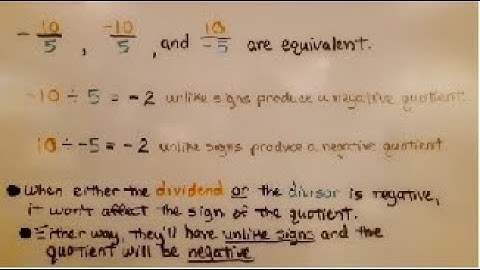 - 10/5 , -10/5 , and 10/-5 are equivalent.
-10 ÷ 5 = -2 unlike signs produce a negative quotient.
10 ÷ -5 = -2 unlike signs produce a negative quotient.
• When either the dividend or the divisor is negative,
it won't affect the sign of the quotient.
• Either way, they'll have unlike signs and the
quotient will be negative